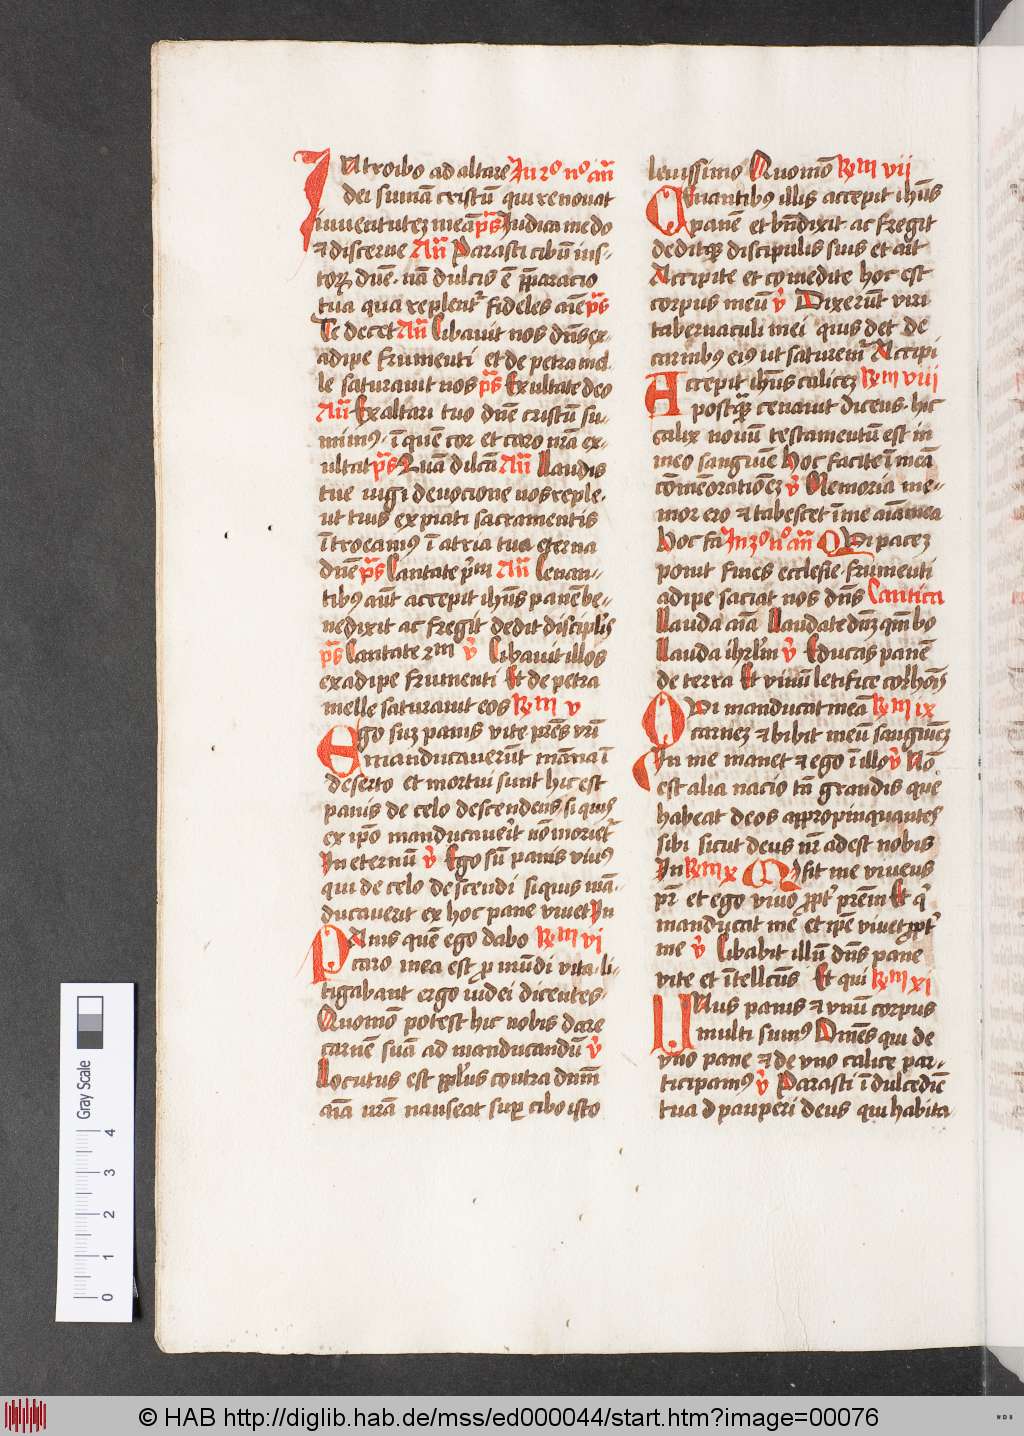 Introibo ad altare In ıı° no° an̄
dei sumā cristū qui renouat
iuuentutez meā ps̄ Iudica me do
et discerne An̄ Parasti cibū ius-
torꝝ dn̄e. nā dulcis ē p̄paracio
tua qua replent᷑ fideles aīe ps̄
Te decet An̄ Cibauit nos dn̄s ex
adipe frumenti et de petra mel-
le saturauit nos ps̄ Exultate deo
An̄ Ex altari tuo dn̄e cristū su-
mimꝰ. ī quē cor et caro nr̄a ex-
ultat ps̄ Quā dilcā An̄ Laudis
tue iugi deuocione nos reple.
ut tuis expiati sacramentis
ītroeamꝰ ī atria tua eterna
dn̄e ps̄ Cantate p̓m An̄ Cenan-
tibꝰ aūt accepit ihūs panē be-
nedixit ac fregit dedit discipl̓is
ps̄ Cantate 2m v̓ Cibauit illos
ex adipe frumenti Et de petra
melle saturauit eos Rm v
Ego suz panis vite pr̄es vr̄i
manducauerūt māna ī
deserto et mortui sunt hic est
panis de celo descendens, si quis
ex ip̄o manducaue̓it nō moriet᷑
In eternū v̓ Ego sū panis viuꝰ
qui de celo descendi si quis mā-
ducauerit ex hoc pane viuet In
Panis quē ego dabo Rm vi
caro mea est ꝓ mūdi vita. li-
tigabant ergo iudei dicentes.
Quomō potest hic nobis dare
carnē suā ad manducandū v̓
Locutus est ppl̓us contra dnm̄
aīa nr̄a nauseat suꝑ cibo isto
leuissimo Quomō Rm vii
Cenantibꝰ illis accepit ihūs
panē et bn̄dixit ac fregit
deditqꝫ discipulis suis et ait
Accipite et comedite hoc est
corpus meū v̓ Dixerūt viri
tabernaculi mei quis det de
carnibꝰ eius ut saturem᷑ Accipi
Accepit ihūs calicez Rm viii
postqꝫ cenauit dicens. hic
calix nouū testamentū est in
meo sanguīe hoc facite ī meā
comēoratiōez v̓ Memoria me-
mor ero et tabescet ī me aīa mea
Hoc fa In 3° no° an̄ Qui pacez
ponit fines ecclesie. frumenti
adipe saciat nos dn̄s Cantica
Lauda aīa Laudate dn̄z qm̄ bo
Lauda ihrl̓m v̓ Educas panē
de terra Et vinū letifice cor hoīs
Qui manducat meā Rm ix
carnez et bibit meū sanguīez
In me manet et ego ī illo v̓ Nō
est alia nacio tā grandis que
habeat deos appropinquantes
sibi sicut deus nr̄ adest nobis
In Rm x Misit me viuens
pr̄ et ego viuo ꝓpt᷑ prēm Et q̓
manducat me et ip̄e viuet ꝓpt᷑
me v̓ Cibabit illū dn̄s pane
vite et ītellc̄us Et qui Rm xi
Unus panis et vnū corpus
multi sumꝰ Om̄es qui de
vno pane et de vno calice par-
ticipamꝰ v̓ Parasti ī dulcediē
tua d pauperi deus qui habita
Gray Scale
0 1 2 3 4
© HAB http://diglib.hab.de/mss/ed000044/start.htm?image=00076